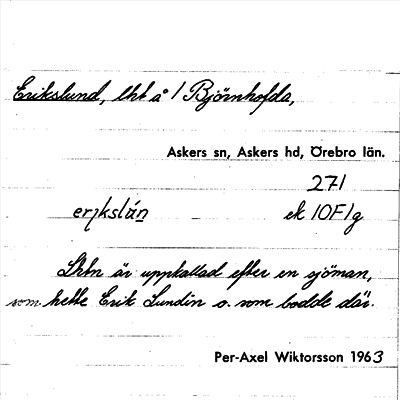 Erikslund, lht å 1 Björnhofda,
Askers sn, Askers hd, Örebro län.
271
erikslán ek 10F1g
Lhtn är uppkallad efter en sjöman,
som hette Erik Lundin o. som bodde där.
Per-Axel Wiktorsson 1963